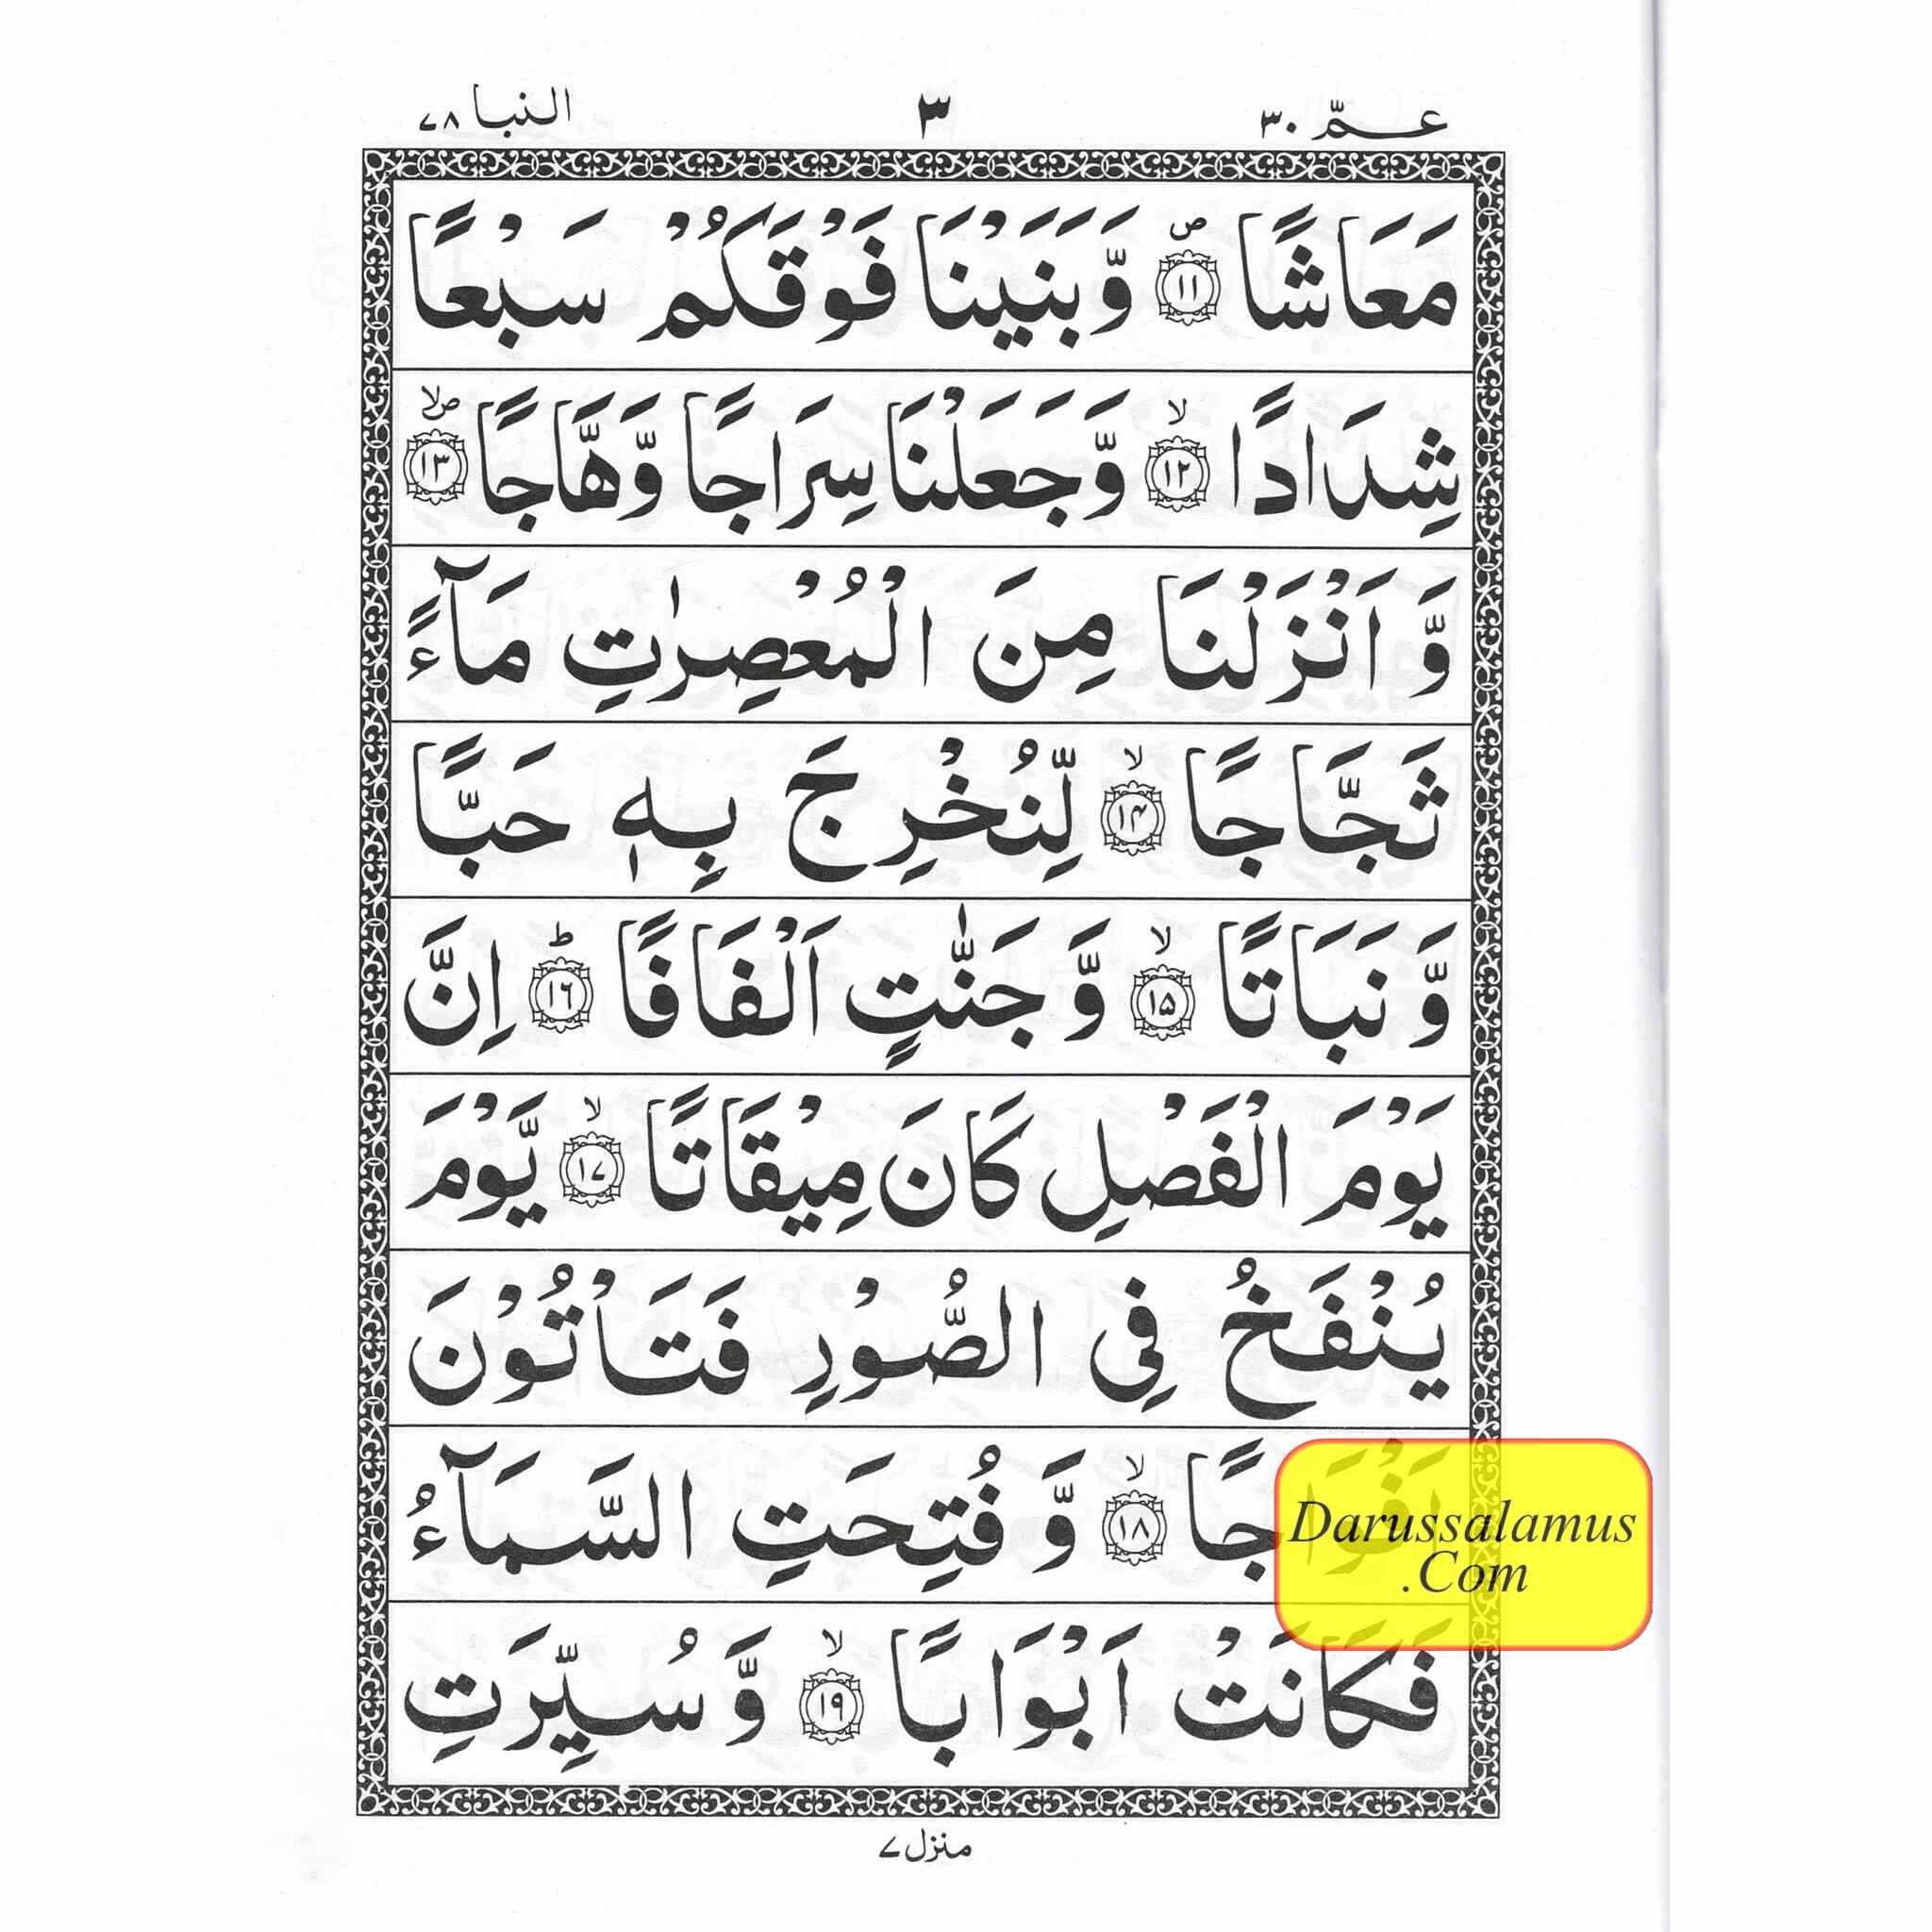 عـــمّ ۳۰
۳
النبا ۷۸
مَعَاشًا ﴿۱۱﴾ۖ وَّبَنَيْنَا فَوْقَكُمْ سَبْعًا
شِدَادًا ﴿۱۲﴾ۙ وَّجَعَلْنَا سِرَاجًا وَّهَّاجًا ﴿۱۳﴾ۙ
وَّ اَنْزَلْنَا مِنَ الْمُعْصِرٰتِ مَآءً
ثَجَّاجًا ﴿۱۴﴾ۙ لِّنُخْرِجَ بِهٖ حَبًّا
وَّ نَبَاتًا ﴿۱۵﴾ۙ وَّ جَنّٰتٍ اَلْفَافًا ﴿۱۶﴾ؕ اِنَّ
يَوْمَ الْفَصْلِ كَانَ مِيْقَاتًا ﴿۱۷﴾ۙ يَّوْمَ
يُنْفَخُ فِى الصُّوْرِ فَتَاْتُوْنَ
اَفْوَاجًا ﴿۱۸﴾ۙ وَّ فُتِحَتِ السَّمَآءُ
فَكَانَتْ اَبْوَابًا ﴿۱۹﴾ۙ وَّ سُيِّرَتِ
منزل ۷
Darussalamus
.Com